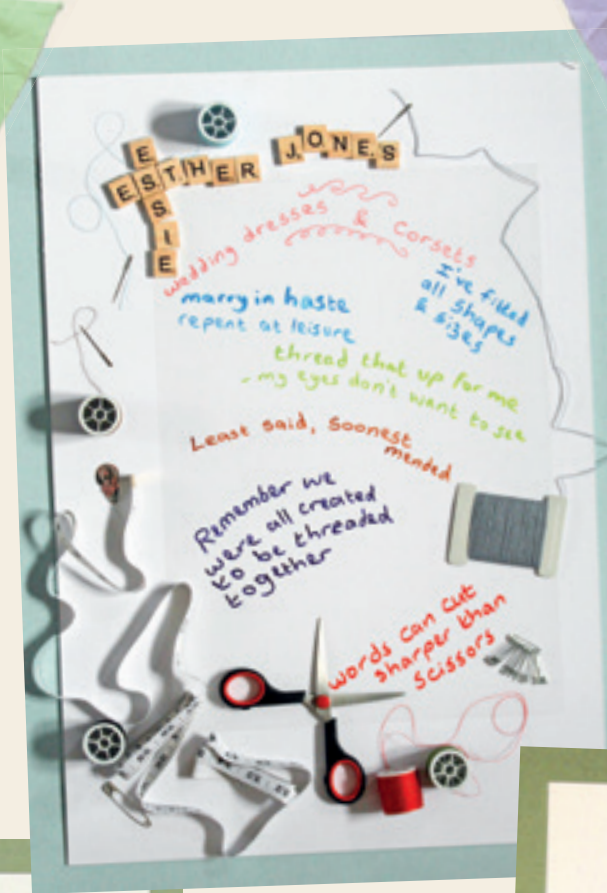 ESTHER JONES
ESSIE
wedding dresses & Corsets
marry in haste
repent at leisure
I've fitted
all shapes
& sizes
thread that up for me
- my eyes don't want to see
Least said, soonest
mended
Remember we
were all created
to be threaded
together
words can cut
sharper than
scissors